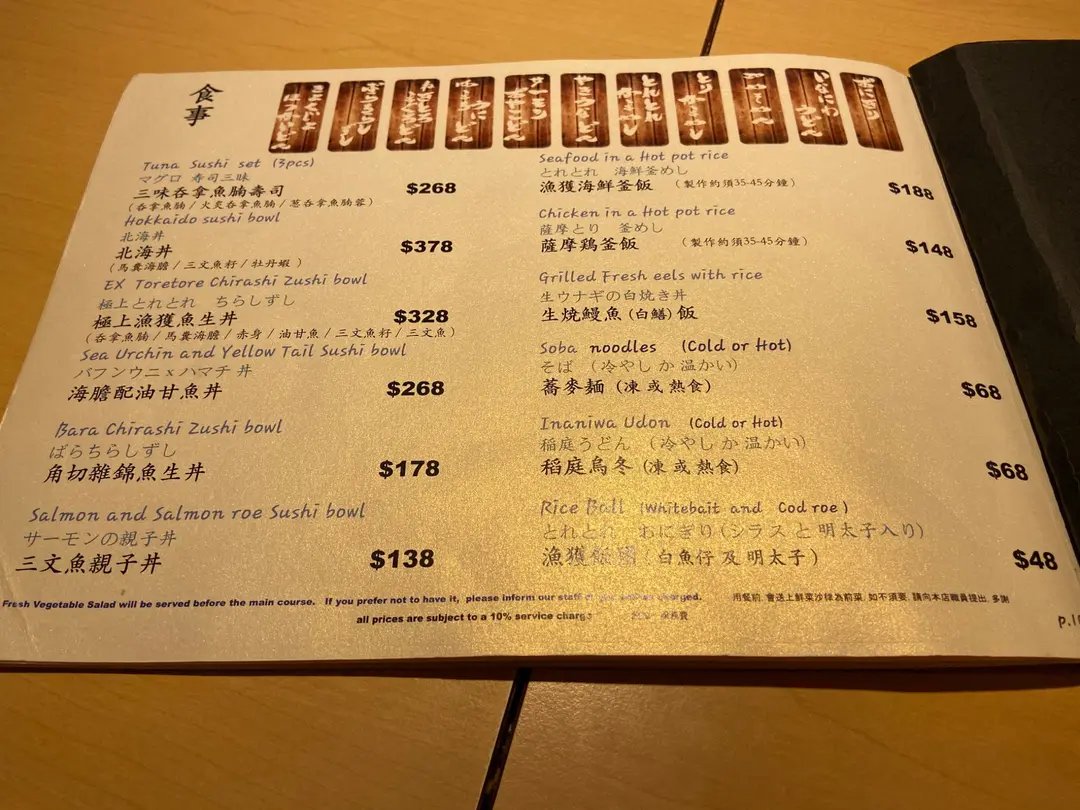 食事
Tuna Sushi set (3pcs)
マグロ 寿司三昧
三味吞拿魚腩壽司 $268
(吞拿魚腩 / 火炙吞拿魚腩 / 葱吞拿魚腩蓉)
Hokkaido sushi bowl
北海丼
北海丼 $378
(馬糞海膽 / 三文魚籽 / 牡丹蝦)
EX Toretore Chirashi Zushi bowl
極上とれとれ ちらしずし
極上漁獲魚生丼 $328
(吞拿魚腩 / 馬糞海膽 / 赤身 / 油甘魚 / 三文魚籽 / 三文魚)
Sea Urchin and Yellow Tail Sushi bowl
バフンウニ x ハマチ 丼
海膽配油甘魚丼 $268
Bara Chirashi Zushi bowl
ばらちらしずし
角切雜錦魚生丼 $178
Salmon and Salmon roe Sushi bowl
サーモンの親子丼
三文魚親子丼 $138
Seafood in a Hot pot rice
とれとれ 海鮮釜めし
漁獲海鮮釜飯 (製作約須35-45分鐘) $188
Chicken in a Hot pot rice
薩摩とり 釜めし
薩摩鶏釜飯 (製作約須35-45分鐘) $148
Grilled Fresh eels with rice
生ウナギの白焼き丼
生燒鰻魚 (白鱔) 飯 $158
Soba noodles (Cold or Hot)
そば (冷やし か 温かい)
蕎麥麵 (凍 或 熱食) $68
Inaniwa Udon (Cold or Hot)
稲庭うどん (冷やし か 温かい)
稻庭烏冬 (凍 或 熱食) $68
Rice Ball (Whitebait and Cod roe)
とれとれ おにぎり (シラス と 明太子入り)
漁獲飯團 (白魚仔 及 明太子) $48
Fresh Vegetable Salad will be served before the main course. If you prefer not to have it, please inform our staff charged. 用餐前, 會送上鮮菜沙律為前菜, 如不須要, 請向本店職員提出, 多謝
all prices are subject to a 10% service charge